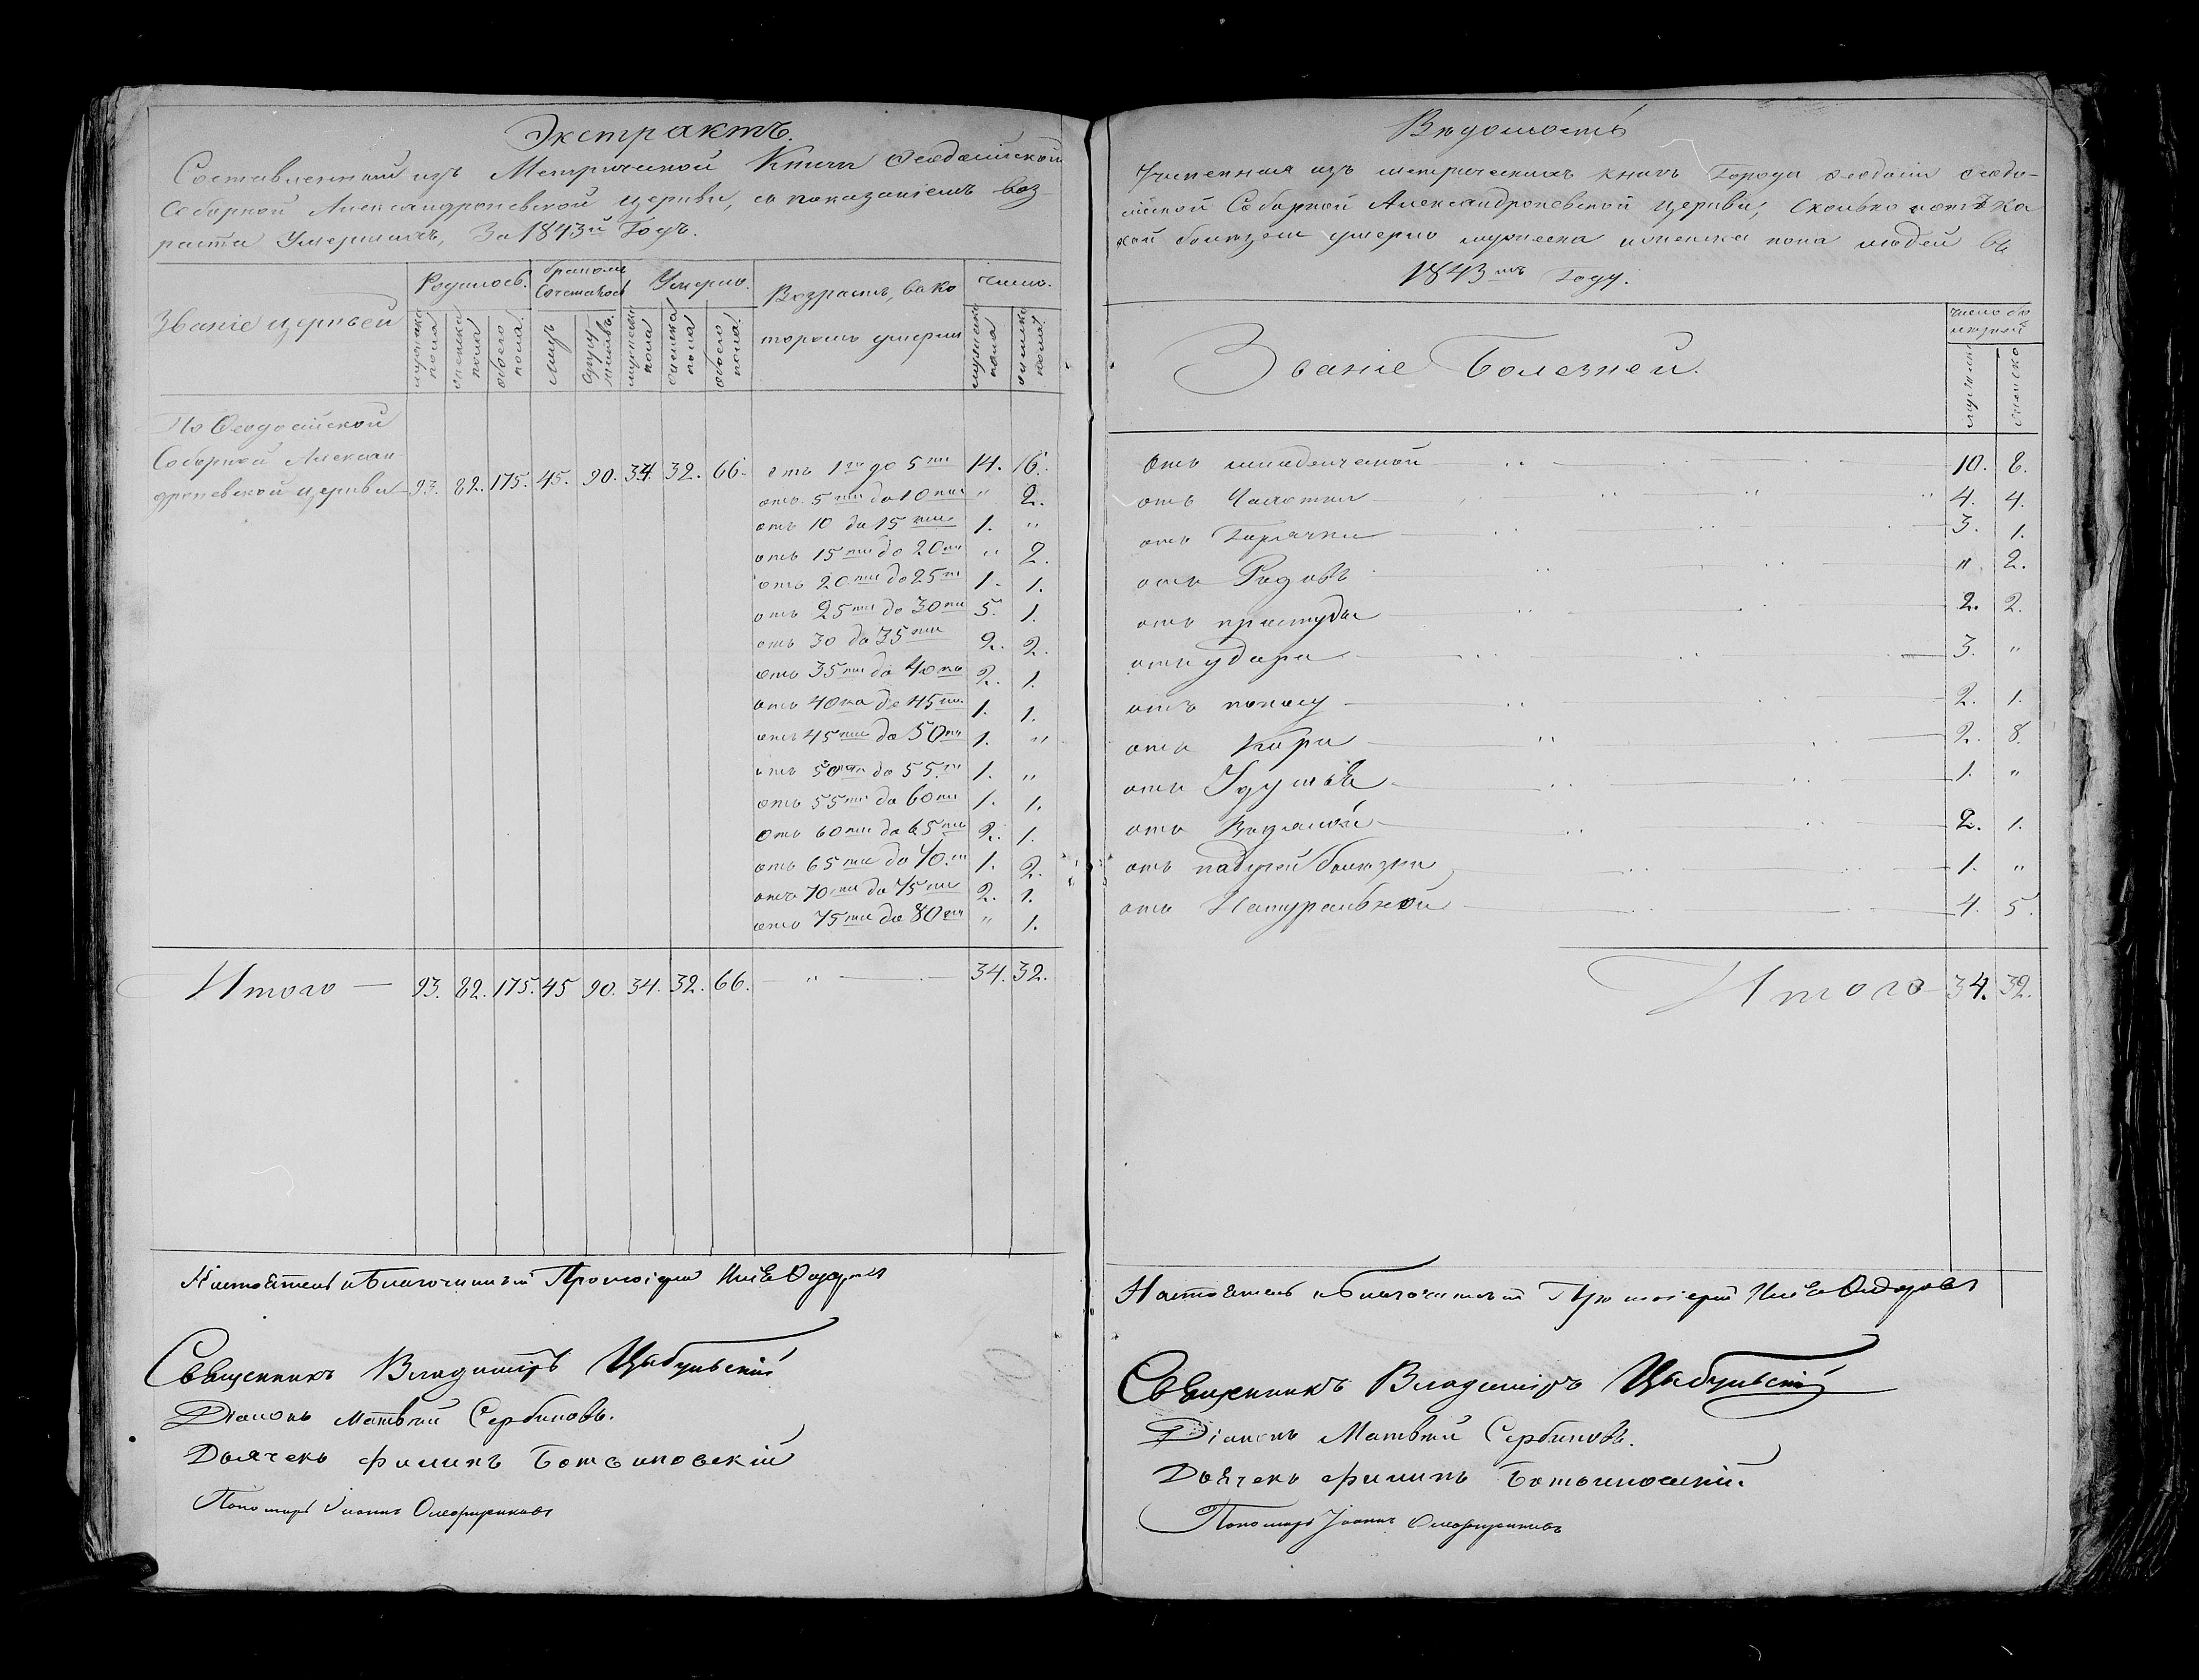 Экстрактъ.
Составленный изъ Метрической Книги Ѳеодосійской
Соборной Александроневской церкви, съ показаніемъ воз
раста Умершихъ, За 1843й Годъ.
Званіе церквей
Родилось.
бракомъ Сочеталось
Умерло.
Возрастъ, въ ко
торомъ умерли
число.
мужеска пола
женска пола
обоего пола.
мужеска пола
женска пола
обоего пола.
мужеска пола
женска пола
По Ѳеодосійской
Соборной Алексан
дроневской церкви 93. 82. 175. 45. 90. 34. 32. 66.
отъ 1го до 5ти 14. 16.
отъ 5ти до 10ти " 2.
отъ 10 до 15ти 1. "
отъ 15ти до 20ти " 2.
отъ 20ти до 25ти 1. 1.
отъ 25ти до 30ти 5. 1.
отъ 30 до 35ти 2. 2.
отъ 35ти до 40ка 2. 1.
отъ 40ка до 45ти 1. 1.
отъ 45ти до 50ти 1. "
отъ 50ти до 55ти 1. "
отъ 55ти до 60ти 1. 1.
отъ 60ти до 65ти 2. 1.
отъ 65ти до 70ти 1. 2.
отъ 70ти до 75ти 2. 1.
отъ 75ти до 80ти " 1.
Итого — 93. 82. 175. 45 90. 34. 32. 66. — " — 34. 32.
Настоятель и Благочинный Протоіерей
Священникъ Владиміръ Цыбульскій
Діаконъ Матвѣй Сербиновъ.
Дьячекъ Филипъ
Пономарь Іоаннъ
Вѣдомость
Учиненная изъ метрическихъ книгъ Города Ѳеодосіи Ѳеодо-
сійской Соборной Александроневской церкви, Сколько отъ ка
кой болѣзни умерло мужеска и женска пола людей въ
1843мъ Году.
Званіе Болезней.
число бо
лѣзней
мужеска
женска
отъ младенческой 10. 8.
отъ Чахотки 4. 4.
отъ Горячки 3. 1.
отъ Родовъ " 2.
отъ простуды 2. 2.
отъ удара 3. "
отъ поносу 2. 1.
отъ Кори 2. 8.
отъ Удушья 1. "
отъ Водяной 2. 1.
отъ падучей болѣзни 1. "
отъ Натуральной 4. 5.
Итого 34. 32.
Настоятель и Благочинный Протоіерей
Священникъ Владиміръ Цыбульскій
Діаконъ Матвѣй Сербиновъ.
Дьячекъ Филипъ
Пономарь Іоаннъ